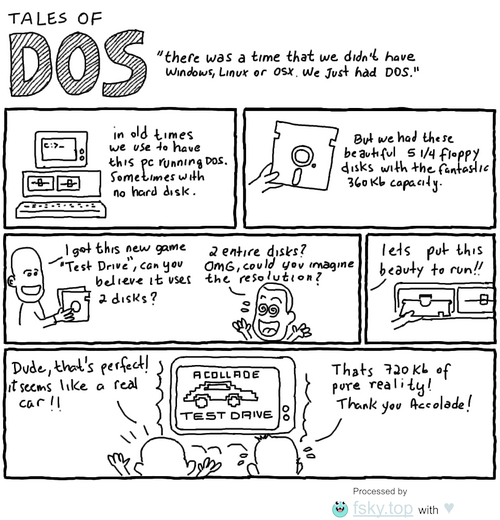 TALES OF
DOS
"there was a time that we didn't have
Windows, Linux or OSX. We Just had DOS."
in old times
we use to have
this pc running DOS.
Sometimes with
no hard disk.
C:>_
But we had these
beautiful 5 1/4 floppy
disks with the fantastic
360Kb capacity.
I got this new game
"Test Drive", can you
believe it uses
2 disks?
2 entire disks?
OMG, could you imagine
the resolution?
lets put this
beauty to run!!
Dude, that's perfect!
it seems like a real
car!!
ACOLLADE
TEST DRIVE
Thats 720Kb of
pure reality!
Thank you Accolade!
Processed by
fsky.top with ♥